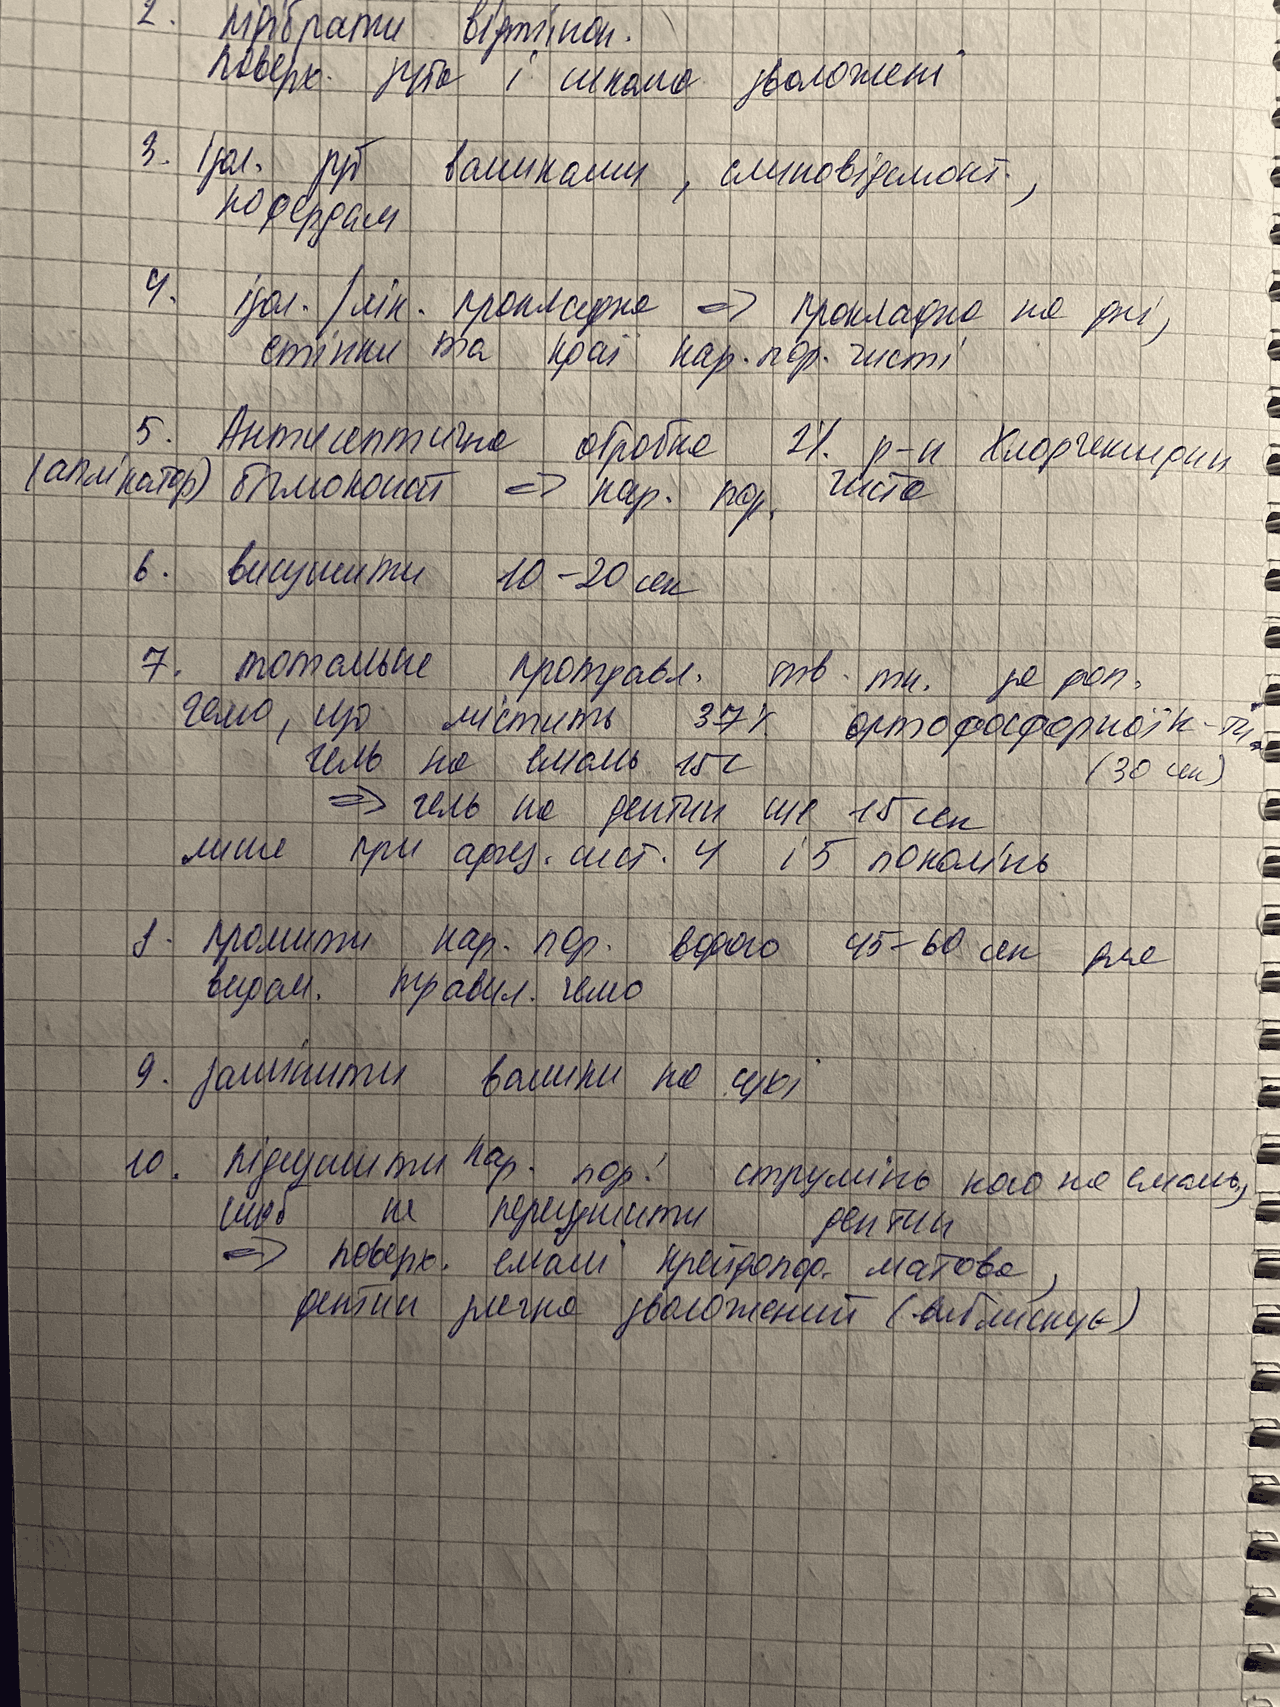 2. підібрати відтінок.
поверх. зуба і шкала зволожені
3. Ізол. зуб валиками, слиновідсмокт.,
кофердам
4. ізол./лік. прокладка => прокладка на дні,
стінки та краї кар. пор. чисті
5. Антисептична обробка 2% р-н Хлоргексидин
(аплікатор) біглюконат => кар. пор. чиста
6. висушити 10-20 сек
7. тотальне протравл. тв. тк. за доп.
гелю, що містить 37% ортофосфорної к-ти,
гель на емаль 15с (30 сек)
=> гель на дентин ще 15 сек
лише при адгез. сист. 4 і 5 поколінь
8. промити кар. пор. водою 45-60 сек для
видал. травил. гелю
9. замінити валики на сухі
10. підсушити кар. пор! струмінь косо на емаль,
щоб не пересушити дентин
=> поверх. емалі крейдопод. матова,
дентин злегка зволожений (виблискує)